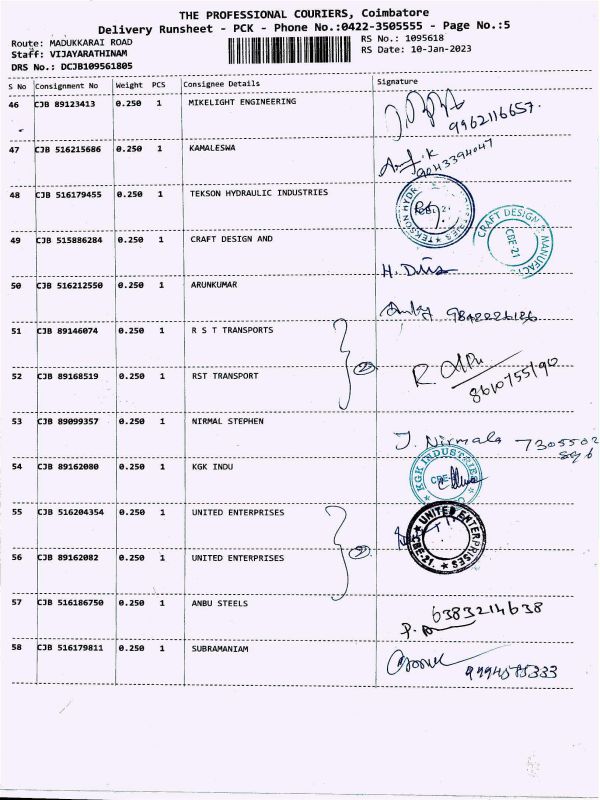 THE PROFESSIONAL COURIERS, Coimbatore
Delivery Runsheet - PCK - Phone No.:0422-3505555 - Page No.:5
Route: MADUKKARAI ROAD RS No.: 1095618
Staff: VIJAYARATHINAM RS Date: 10-Jan-2023
DRS No.: DCJB109561805
S No Consignment No Weight PCS Consignee Details Signature
46 CJB 89123413 0.250 1 MIKELIGHT ENGINEERING
9962116657.
47 CJB 516215686 0.250 1 KAMALESWA
9043394047
48 CJB 516179455 0.250 1 TEKSON HYDRAULIC INDUSTRIES
TEKSON HYDR
49 CJB 515886284 0.250 1 CRAFT DESIGN AND
CRAFT DESIGN & MANUFACT
CBE-21
50 CJB 516212550 0.250 1 ARUNKUMAR
9842226186
51 CJB 89146074 0.250 1 R S T TRANSPORTS
52 CJB 89168519 0.250 1 RST TRANSPORT
8610755190
53 CJB 89099357 0.250 1 NIRMAL STEPHEN
J. Nirmala 7305502
54 CJB 89162080 0.250 1 KGK INDU
KGK INDUSTRIES
55 CJB 516204354 0.250 1 UNITED ENTERPRISES
UNITED ENTERPRISES
CBE-21.
56 CJB 89162082 0.250 1 UNITED ENTERPRISES
57 CJB 516186750 0.250 1 ANBU STEELS
6383214638
58 CJB 516179811 0.250 1 SUBRAMANIAM